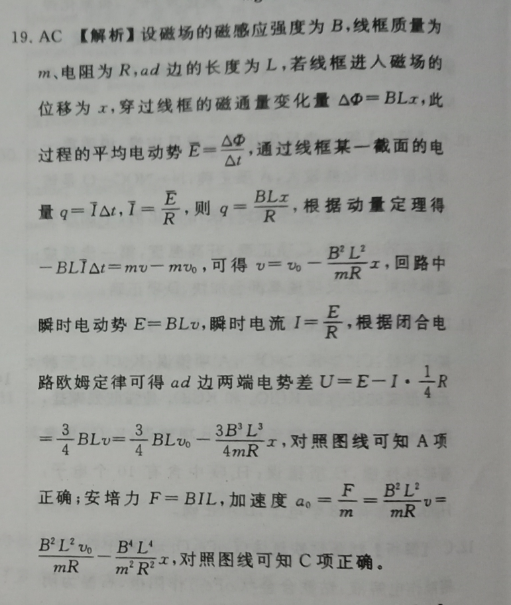 19. AC 【解析】设磁场的磁感应强度为 B,线框质量为
m、电阻为 R,ad 边的长度为 L,若线框进人磁场的
位移为 x,穿过线框的磁通量变化量 ΔΦ=BLx,此
过程的平均电动势 E̅=ΔΦ/Δt,通过线框某一截面的电
量 q=I̅Δt,I̅=E̅/R,则 q=BLx/R,根据动量定理得
-BLI̅Δt=mv-mv₀,可得 v=v₀-B²L²/mR x,回路中
瞬时电动势 E=BLv,瞬时电流 I=E/R,根据闭合电
路欧姆定律可得 ad 边两端电势差 U=E-I·1/4 R
=3/4 BLv=3/4 BLv₀-3B³L³/4mR x,对照图线可知 A 项
正确;安培力 F=BIL,加速度 a₀=F/m=B²L²/mR v=
B²L²v₀/mR-B⁴L⁴/m²R² x,对照图线可知 C 项正确。